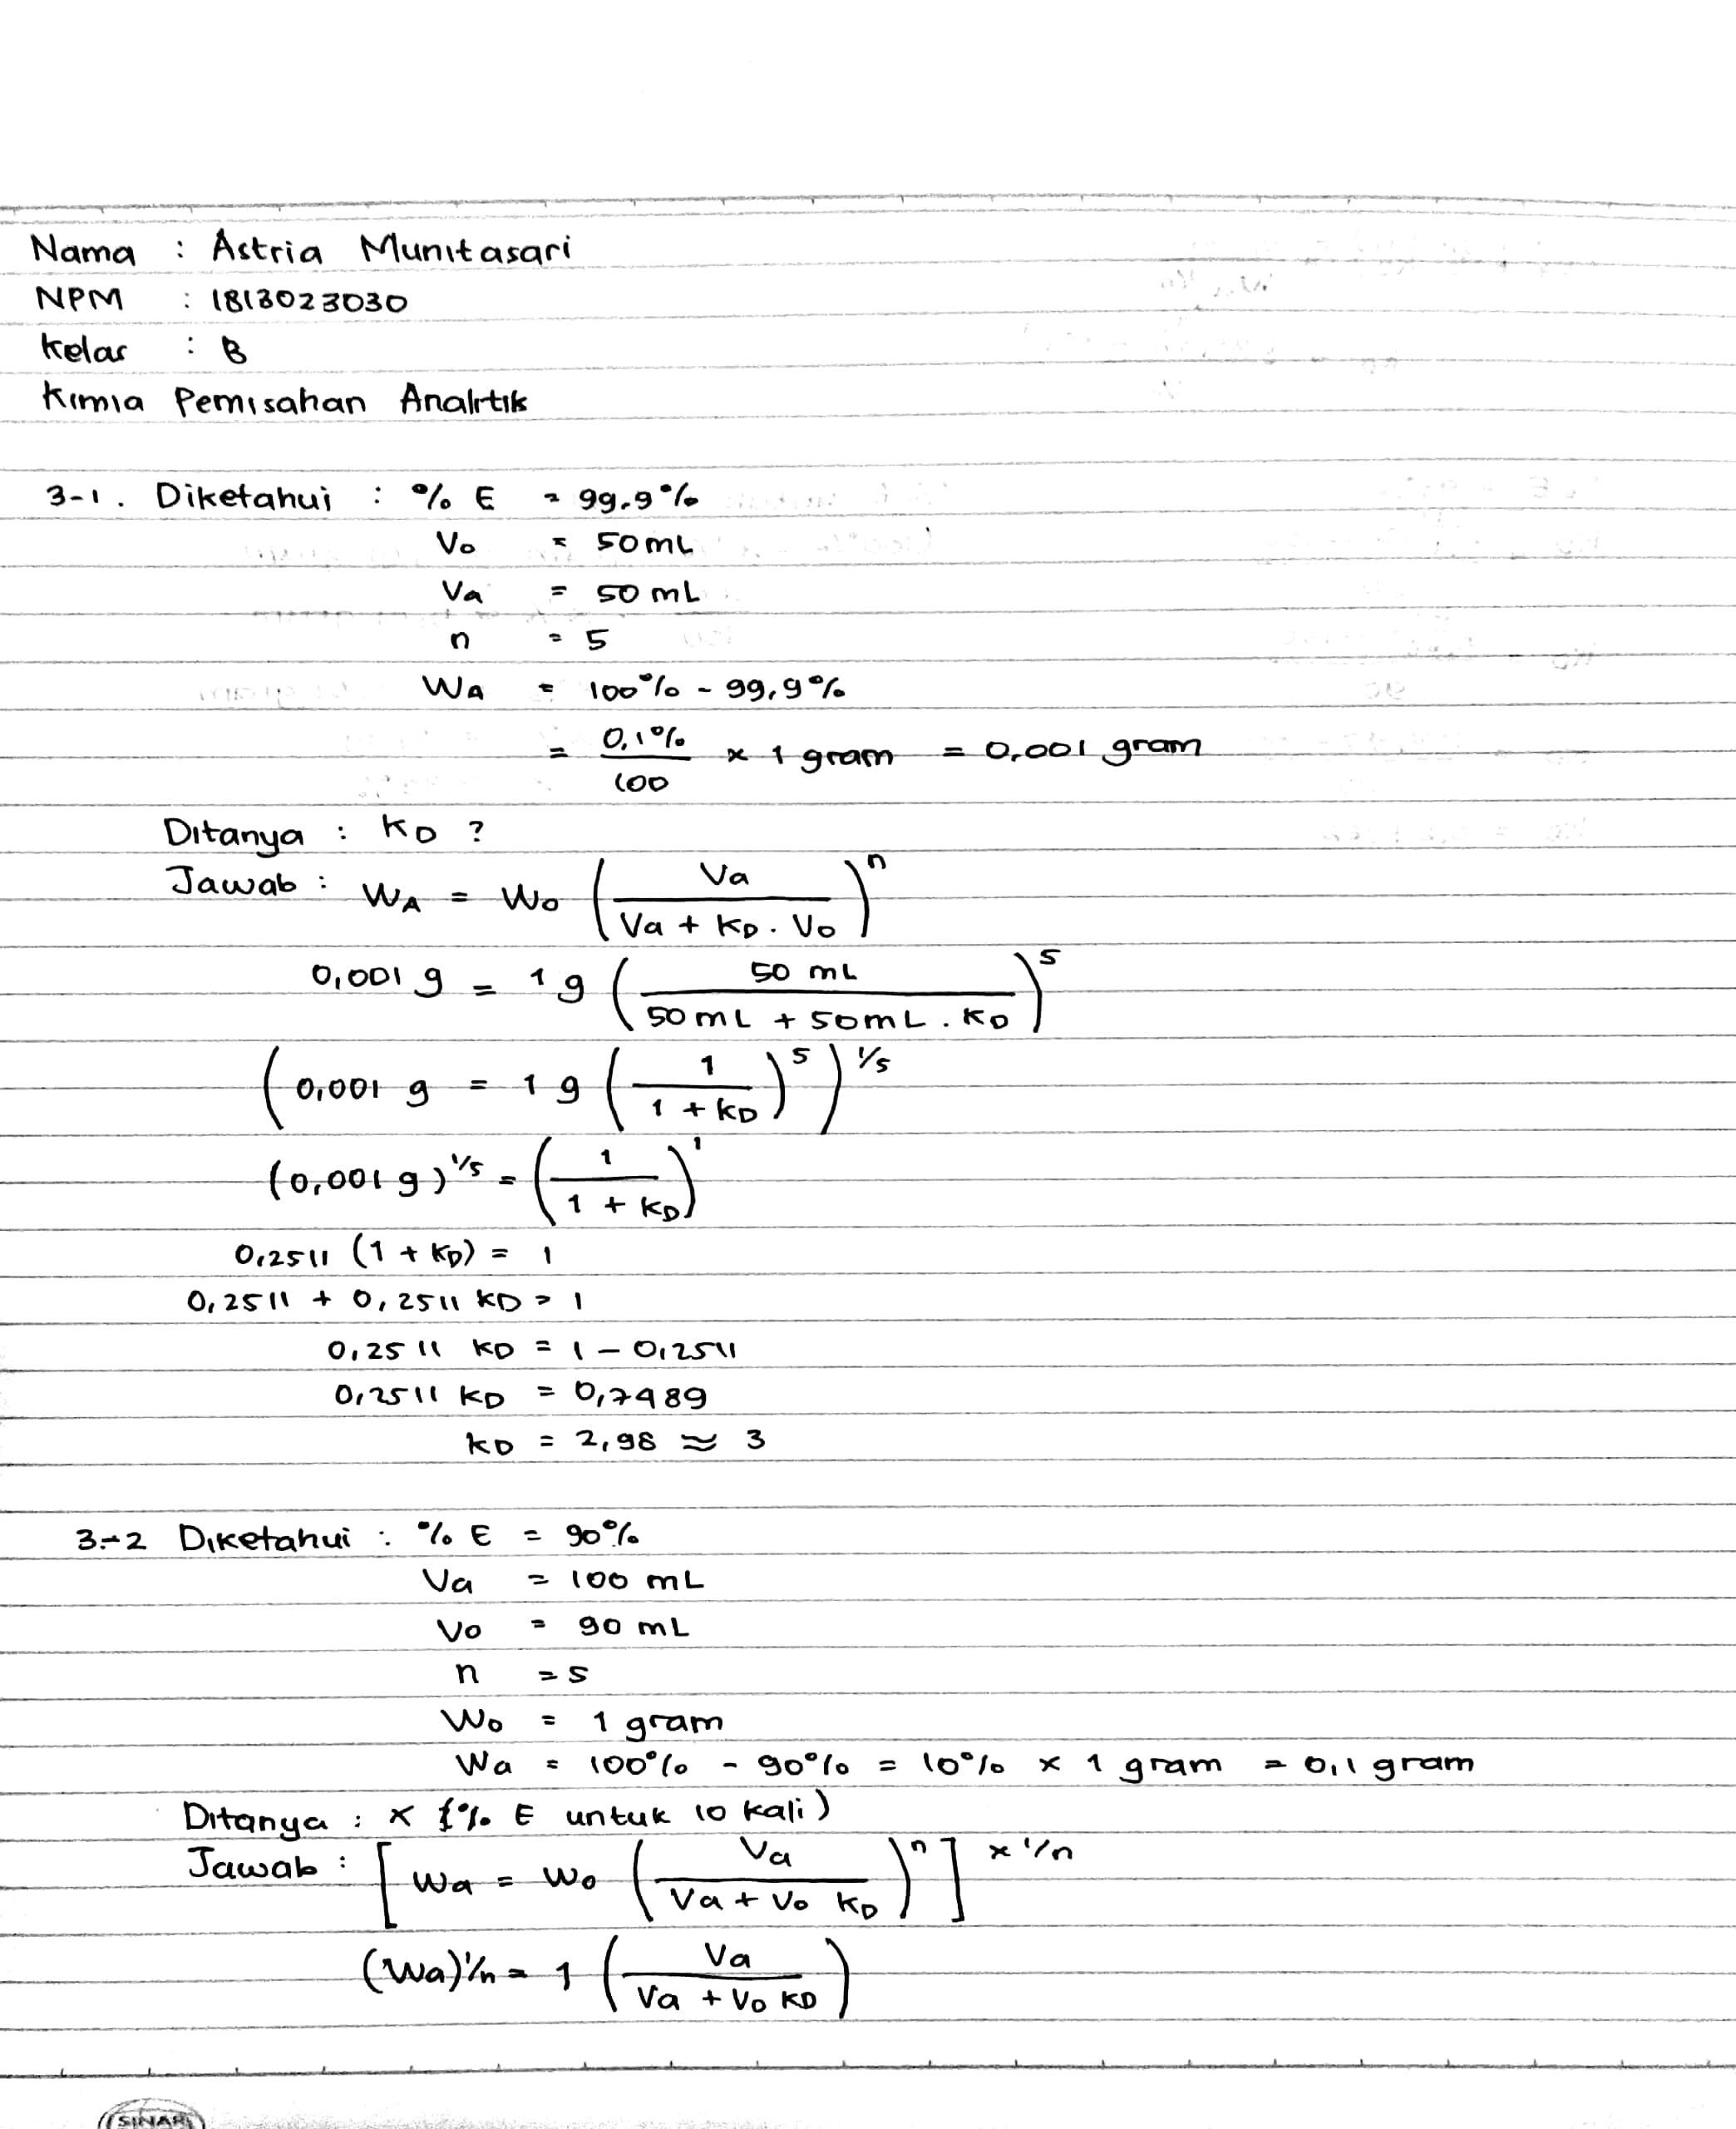 Nama : Astria Munitasari
NPM : 1813023030
Kelas : B
Kimia Pemisahan Analitik
3-1. Diketahui : % E = 99,9%
Vo = 50 mL
Va = 50 mL
n = 5
WA = 100% - 99,9%
= 0,1%/100 x 1 gram = 0,001 gram
Ditanya : KD ?
Jawab : WA = Wo (Va / (Va + KD . Vo))^n
0,001 g = 1 g (50 mL / (50 mL + 50 mL . KD))^5
(0,001 g = 1 g (1 / (1 + KD))^5)^1/5
(0,001 g)^1/5 = (1 / (1 + KD))^1
0,2511 (1 + KD) = 1
0,2511 + 0,2511 KD = 1
0,2511 KD = 1 - 0,2511
0,2511 KD = 0,7489
KD = 2,98 ≈ 3
3-2 Diketahui : % E = 90%
Va = 100 mL
Vo = 90 mL
n = 5
Wo = 1 gram
Wa = 100% - 90% = 10% x 1 gram = 0,1 gram
Ditanya : x (% E untuk 10 kali)
Jawab : [Wa = Wo (Va / (Va + Vo KD))^n] x 1/n
(Wa)^1/n = 1 (Va / (Va + Vo KD))
SINAR